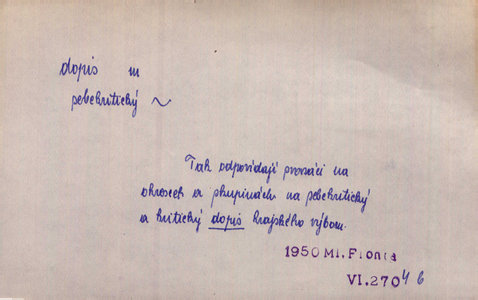 dopis m
sebekritický ~
Tak odpovídají pracovníci na
okresech a skupinách na sebekritický
a kritický dopis krajského výboru.
1950 Ml. Fronta
VI. 270 4 6